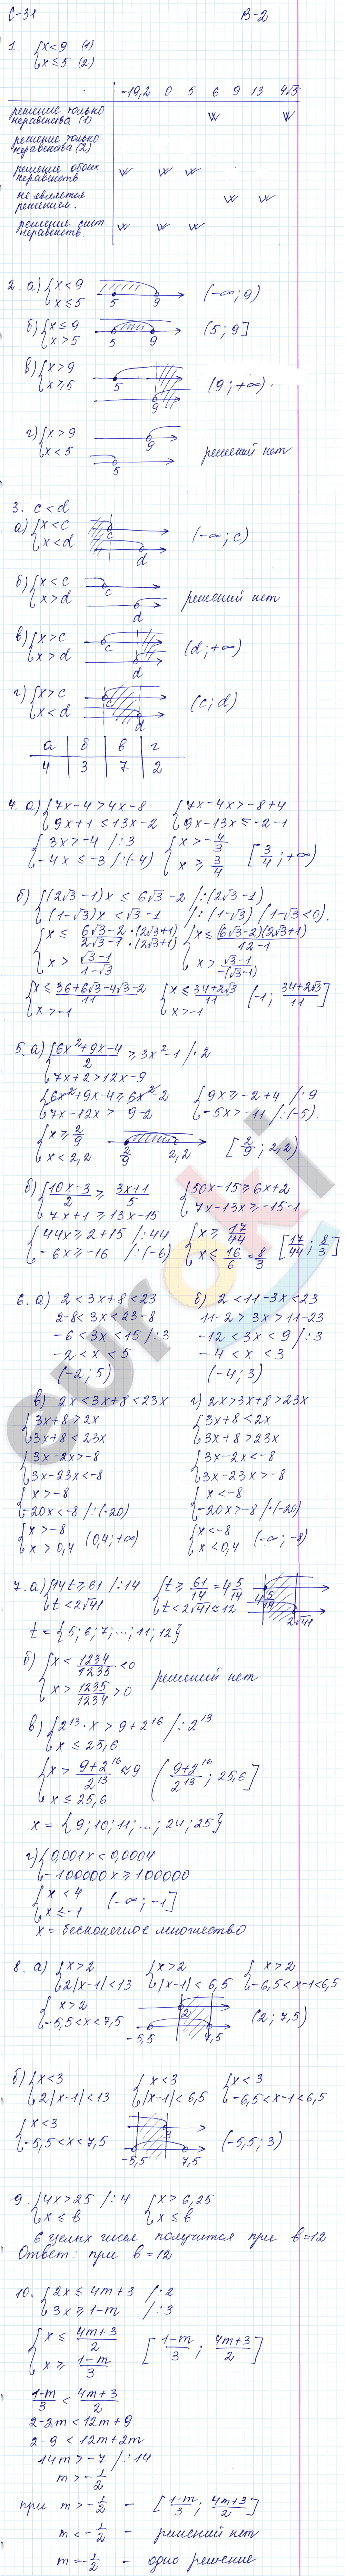 С-31 В-2
1. {x<9 (1)
{x≤5 (2)
-19,2 0 5 6 9 13 4√5
решение только неравенства (1) V V
решение только неравенства (2)
решение обоих неравенств V V V
не является решением. V V
решение сист. неравенств V V V
2. а) {x<9
{x≤5 5 9 (-∞; 9)
б) {x≤9
{x>5 5 9 (5; 9]
в) {x>9
{x≥5 5 9 (9; +∞).
г) {x>9
{x<5 9 5 решений нет
3. c<d
а) {x<c
{x<d c d (-∞; c)
б) {x<c
{x>d c d решений нет
в) {x>c
{x>d c d (d; +∞)
г) {x>c
{x<d c d (c; d)
а б в г
4 3 7 2
4. а) {7x-4>4x-8 {7x-4x>-8+4
{9x+1≤13x-2 {9x-13x≤-2-1
{3x>-4 /:3 {x>-4/3
{-4x≤-3 /:(-4) {x≥3/4 [3/4; +∞)
б) {(2√3-1)x≤6√3-2 /:(2√3-1)
{(1-√3)x<√3-1 /:(1-√3) (1-√3<0).
{x≤(6√3-2)·(2√3+1)/(2√3-1)·(2√3+1) {x≤(6√3-2)(2√3+1)/12-1
{x>(√3-1)/(1-√3) {x>(√3-1)/-(√3-1)
{x≤(36+6√3-4√3-2)/11 {x≤(34+2√3)/11 (-1; (34+2√3)/11]
{x>-1 {x>-1
5. а) {(6x²+9x-4)/2≥3x²-1 /·2
{7x+2>12x-9
{6x²+9x-4≥6x²-2 {9x≥-2+4 /:9
{7x-12x>-9-2 {-5x>-11 /:(-5).
{x≥2/9
{x<2,2 2/9 2,2 [2/9; 2,2)
б) {(10x-3)/2≥(3x+1)/5 {50x-15≥6x+2
{7x+1≥13x-15 {7x-13x≥-15-1
{44x≥2+15 /:44 {x≥17/44
{-6x≥-16 /:(-6) {x≤16/6=8/3 [17/44; 8/3]
6. а) 2<3x+8<23 б) 2<11-3x<23
2-8<3x<23-8 11-2>3x>11-23
-6<3x<15 /:3 -12<3x<9 /:3
-2<x<5 -4<x<3
(-2; 5) (-4; 3)
в) 2x<3x+8<23x г) 2x>3x+8>23x
{3x+8>2x {3x+8<2x
{3x+8<23x {3x+8>23x
{3x-2x>-8 {3x-2x<-8
{3x-23x<-8 {3x-23x>-8
{x>-8 {x<-8
{-20x<-8 /:(-20) {-20x>-8 /:(-20)
{x>-8 {x<-8
{x>0,4 (0,4; +∞) {x<0,4 (-∞; -8)
7. а) {14t≥61 /:14 {t≥61/14=4 5/14
{t<2√41 {t<2√41≈12 4 5/14 2√41
t={5; 6; 7; ...; 11; 12}
б) {x<1234/1235<0
{x>1235/1234>0 решений нет
в) {2¹³·x>9+2¹⁶ /:2¹³
{x≤25,6
{x>(9+2¹⁶)/2¹³≈9 ((9+2¹⁶)/2¹³; 25,6]
{x≤25,6
x={9; 10; 11; ...; 24; 25}
г) {0,001x<0,0004
{-100000x≥100000
{x<4
{x≤-1 (-∞; -1]
x = бесконечное множество
8. а) {x>2 {x>2 {x>2
{2|x-1|<13 {|x-1|<6,5 {-6,5<x-1<6,5
{x>2
{-5,5<x<7,5 2 -5,5 7,5 (2; 7,5)
б) {x<3 {x<3 {x<3
{2|x-1|<13 {|x-1|<6,5 {-6,5<x-1<6,5
{x<3
{-5,5<x<7,5 3 -5,5 7,5 (-5,5; 3)
9. {4x>25 /:4 {x>6,25
{x≤b {x≤b
6 целых чисел получится при b=12
Ответ: при b=12
10. {2x≤4m+3 /:2
{3x≥1-m /:3
{x≤(4m+3)/2
{x≥(1-m)/3 [(1-m)/3; (4m+3)/2]
(1-m)/3<(4m+3)/2
2-2m<12m+9
2-9<12m+2m
14m>-7 /:14
m>-1/2
при m>-1/2 - [(1-m)/3; (4m+3)/2]
m<-1/2 - решений нет
m=-1/2 - одно решение
euroki